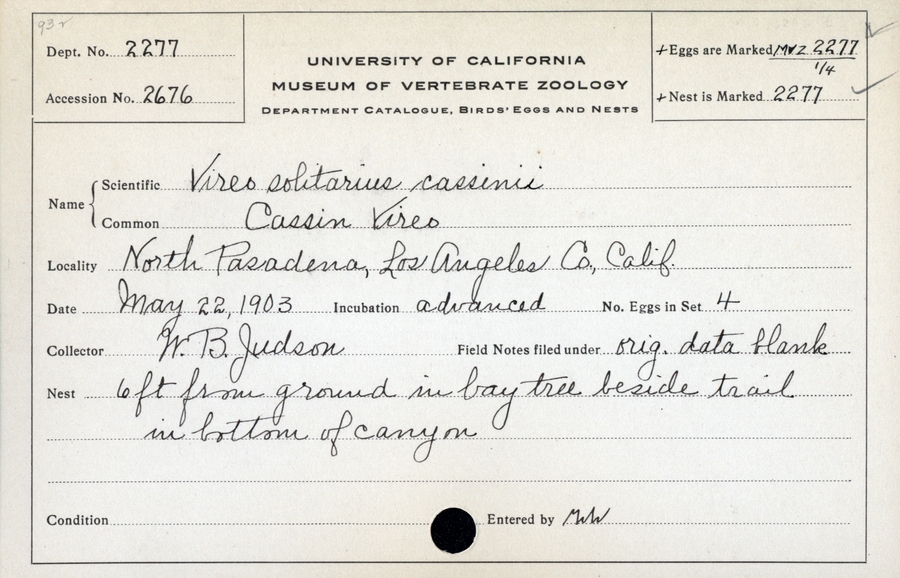 Dept. No. 2277
Accession No. 2676
UNIVERSITY OF CALIFORNIA
MUSEUM OF VERTEBRATE ZOOLOGY
DEPARTMENT CATALOGUE, BIRDS' EGGS AND NESTS
+Eggs are Marked MVZ 2277
1/4
+Nest is Marked 2277
Name
Scientific Vireo solitarius cassinii
Common Cassin Vireo
Locality North Pasadena, Los Angeles Co., Calif.
Date May 22, 1903 Incubation advanced No. Eggs in Set 4
Collector W. B. Judson Field Notes filed under orig. data blank
Nest 6 ft from ground in bay tree beside trail
in bottom of canyon
Condition Entered by